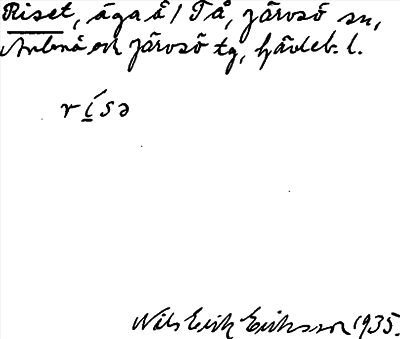 Riset, äga å / Tå, Järvsö sn,
Arbrå och Järvsö tg, Gävleb. l.
r í s ə
Nils Erik Eriksson 1935.